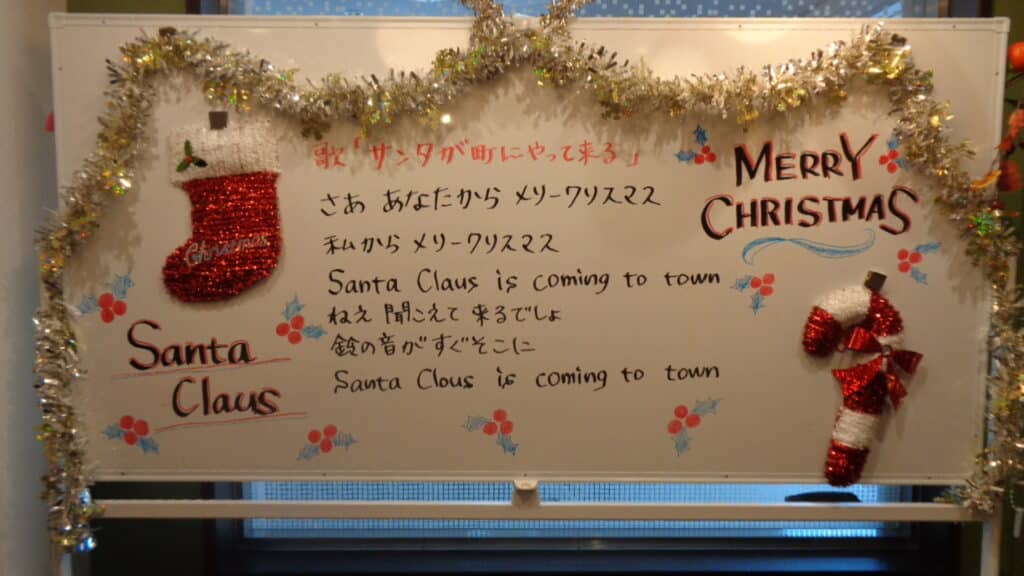 歌「サンタが町にやって来る」
さあ あなたから メリークリスマス
私から メリークリスマス
Santa Claus is coming to town
ねえ 聞こえて 来るでしょ
鈴の音が すぐそこに
Santa Claus is coming to town
Christmas
Santa
Claus
MERRY
CHRISTMAS